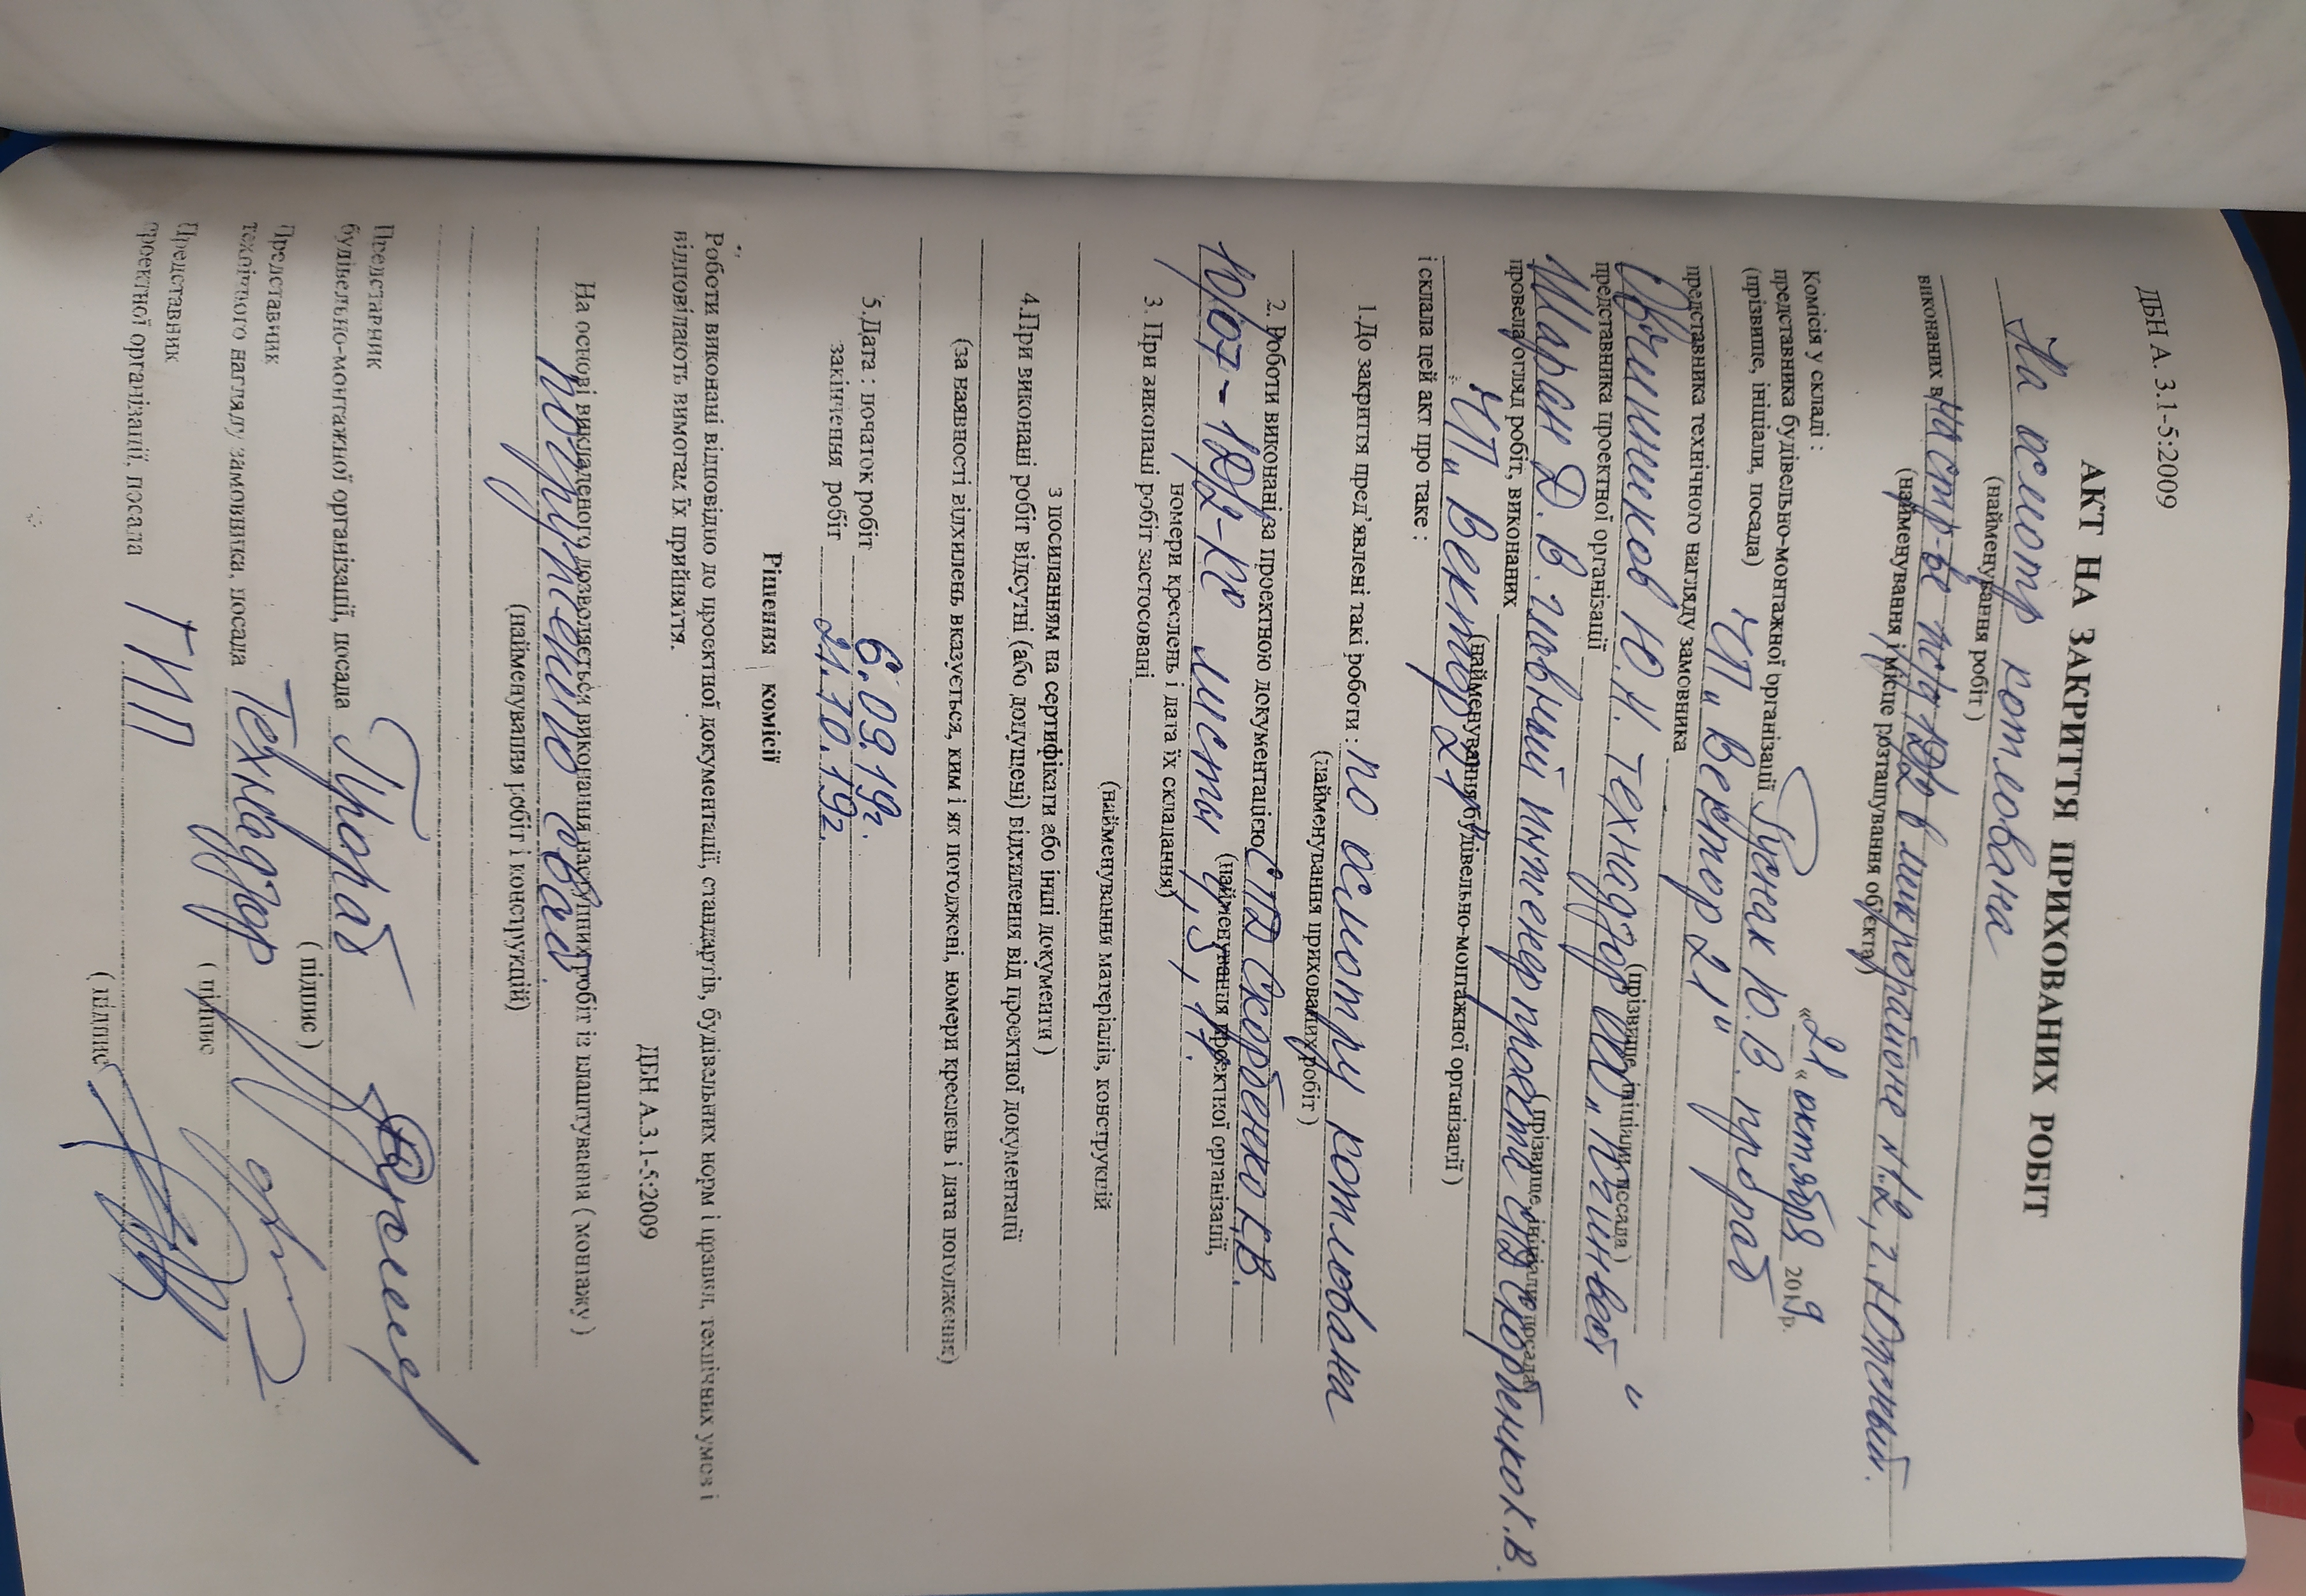 ДБН А. 3.1-5:2009
АКТ НА ЗАКРИТТЯ ПРИХОВАНИХ РОБІТ
На осмотр котлована
(найменування робіт )
виконаних в на стр-ве поз 12/2 в микрорайоне №2, г. Южный.
(найменування і місце розташування об'єкта)
«21« октября 2019р.
Комісія у складі :
представника будівельно-монтажної організації Руснак Ю.В. прораб
(прізвище, ініціали, посада)
ЧП „Вектор 21"
представника технічного нагляду замовника
Овчинников Ю.Н. технадзор „ "
(прізвище, ініціали, посада)
представника проектної організації
Шаран Д.В. главный инженер проекта СПД Скорбенко К.В.
(прізвище, ініціали, посада)
провела огляд робіт, виконаних
ЧП „Вектор 21"
(найменування будівельно-монтажної організації )
і склала цей акт про таке :
1.До закриття пред'явлені такі роботи : по осмотру котлована
(найменування прихованих робіт )
2. Роботи виконані за проектною документацією СПД Скорбенко К.В.
(найменування проектної організації,
10/07-12/2-КЖ листы
номери креслень і дата їх складання)
3. При виконані робіт застосовані
(найменування матеріалів, конструкцій
з посиланням на сертифікати або інші документи )
4.При виконані робіт відсутні (або допущені) відхилення від проектної документації
(за наявності відхилень вказується, ким і як погоджені, номери креслень і дата погодження)
5.Дата : початок робіт 6.09.19г.
закінчення робіт 21.10.19г.
Рішення комісії
Роботи виконані відповідно до проектної документації, стандартів, будівельних норм і правил, технічних умов і
відповідають вимогам їх прийняття.
ДБН А.3.1-5:2009
На основі викладеного дозволяється виконання наступних робіт із влаштування ( монтажу )
погружению свай.
(найменування робіт і конструкцій)
Представник
будівельно-монтажної організації, посада Прораб
( підпис )
Представник
технічного нагляду замовника, посада Технадзор
( підпис
Представник
проектної організації, посада ГИП
( підпис